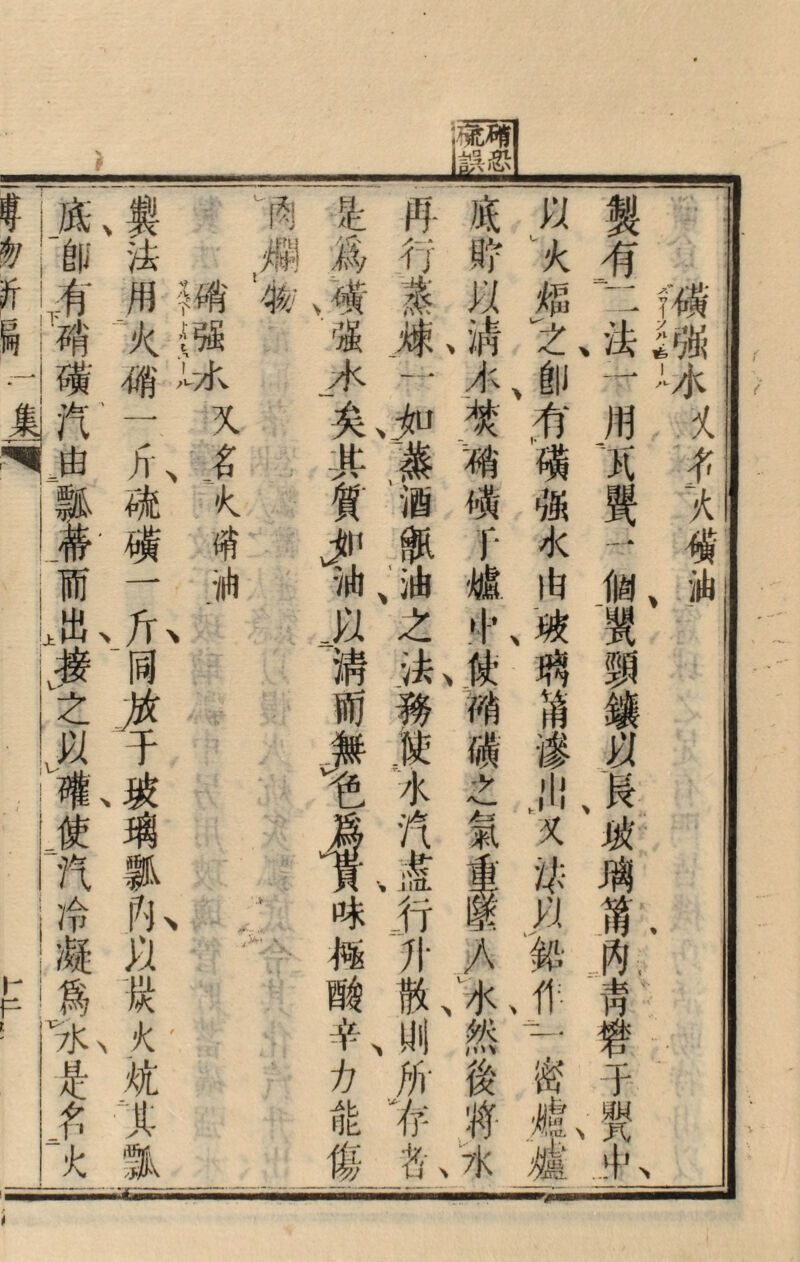 硝恐
硫誤
磺强水 又名火磺油
製有二法一用瓦甖一個甖頸鑲以長玻璃筩內靑礬于甖中
以火煏之卽有磺强水由玻璃筩滲出又法以鉛作一密爐爐
底貯以淸水焚硝磺于爐中使硝磺之氣重墜入水然後將水
再行蒸煉一如蒸酒甑油之法務使水汽盡行升散則所存者
是爲磺强水矣其質如油以淸而無色爲貴味極酸辛力能傷
肉爛物
硝强水 又名火硝油
製法用火硝一斤硫磺一斤同放于玻璃瓢內以炭火炕其瓢
底卽有硝磺汽由瓢蒂而出接之以礶使汽冷凝爲水是名火
博物新編 一集